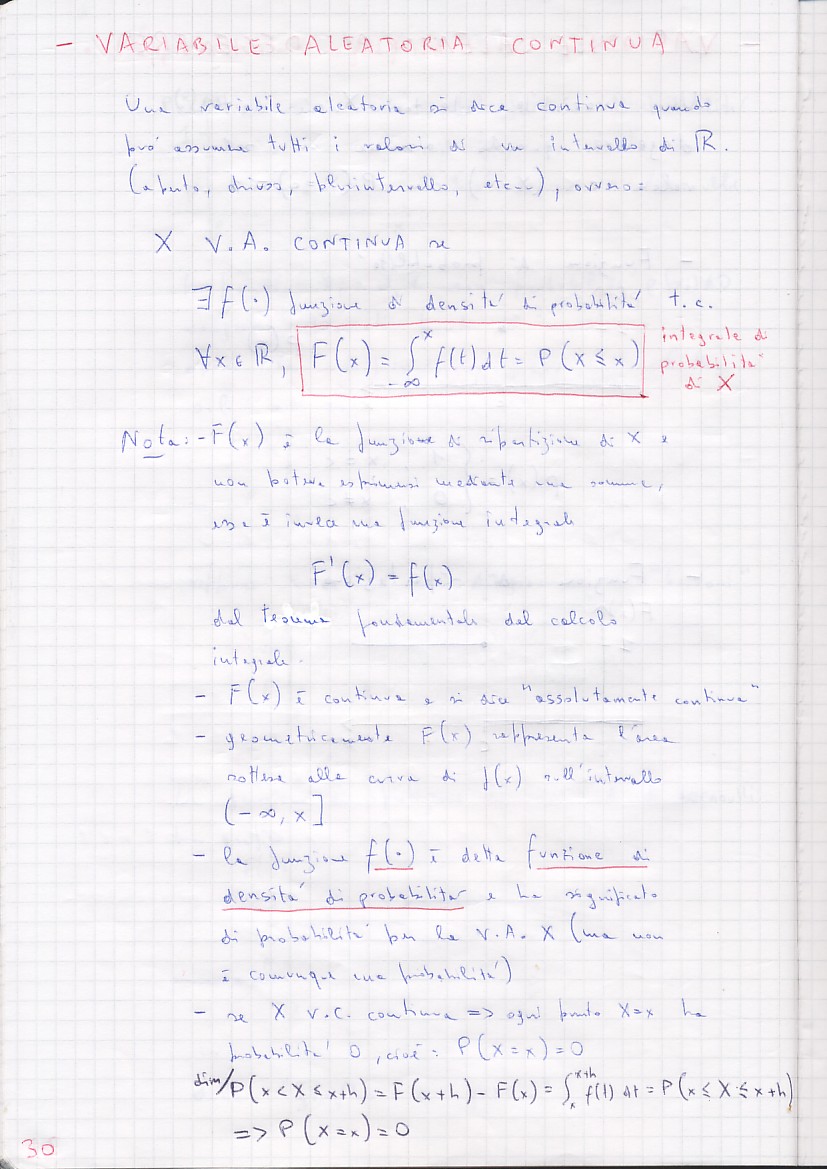 - VARIABILE ALEATORIA CONTINUA -
Una variabile aleatoria si dice continua quando
può assumere tutti i valori di un intervallo di ℝ.
(aperto, chiuso, plurintervallo, etc...), ovvero:
X V.A. CONTINUA se
∃ f(·) funzione di densità di probabilità t.c.
∀x ∈ ℝ, F(x) = ∫_{-∞}^{x} f(t) dt = P(X ≤ x)
integrale di
probabilità
di X
Nota: - F(x) è la funzione di ripartizione di X e
non poteva esprimersi mediante una somma,
essa è invece una funzione integrale
F'(x) = f(x)
dal teorema fondamentale del calcolo
integrale.
- F(x) è continua e si dice "assolutamente continua"
- geometricamente F(x) rappresenta l'area
sottesa alla curva di f(x) sull'intervallo
(-∞, x]
- la funzione f(·) è detta funzione di
densità di probabilità e ha significato
di probabilità per la V.A. X (ma non
è comunque una probabilità)
- se X v.c. continua => ogni punto X=x ha
probabilità 0, cioè: P(X=x)=0
dim/ P(x < X ≤ x+h) = F(x+h) - F(x) = ∫_{x}^{x+h} f(t) dt = P(x ≤ X ≤ x+h)
=> P(X=x)=0
30